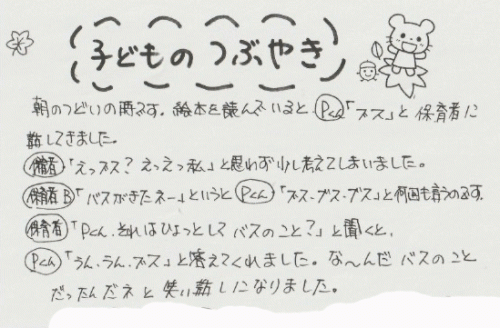 子どものつぶやき
朝のつどいの時です。絵本を読んでいると、Pくん「ブス」と保育者に
話してきました。
保育者「えっブス？えっえっ私」と思わず少し考えてしまいました。
保育者B「バスがきたネー」というとPくん「ブス・ブス・ブス」と何回も言うのです。
保育者「Pくん、それはひょっとしてバスのこと？」と聞くと、
Pくん「うん、うん、ブス」と答えてくれました。な〜んだバスのこと
だったんだネと笑い話しになりました。